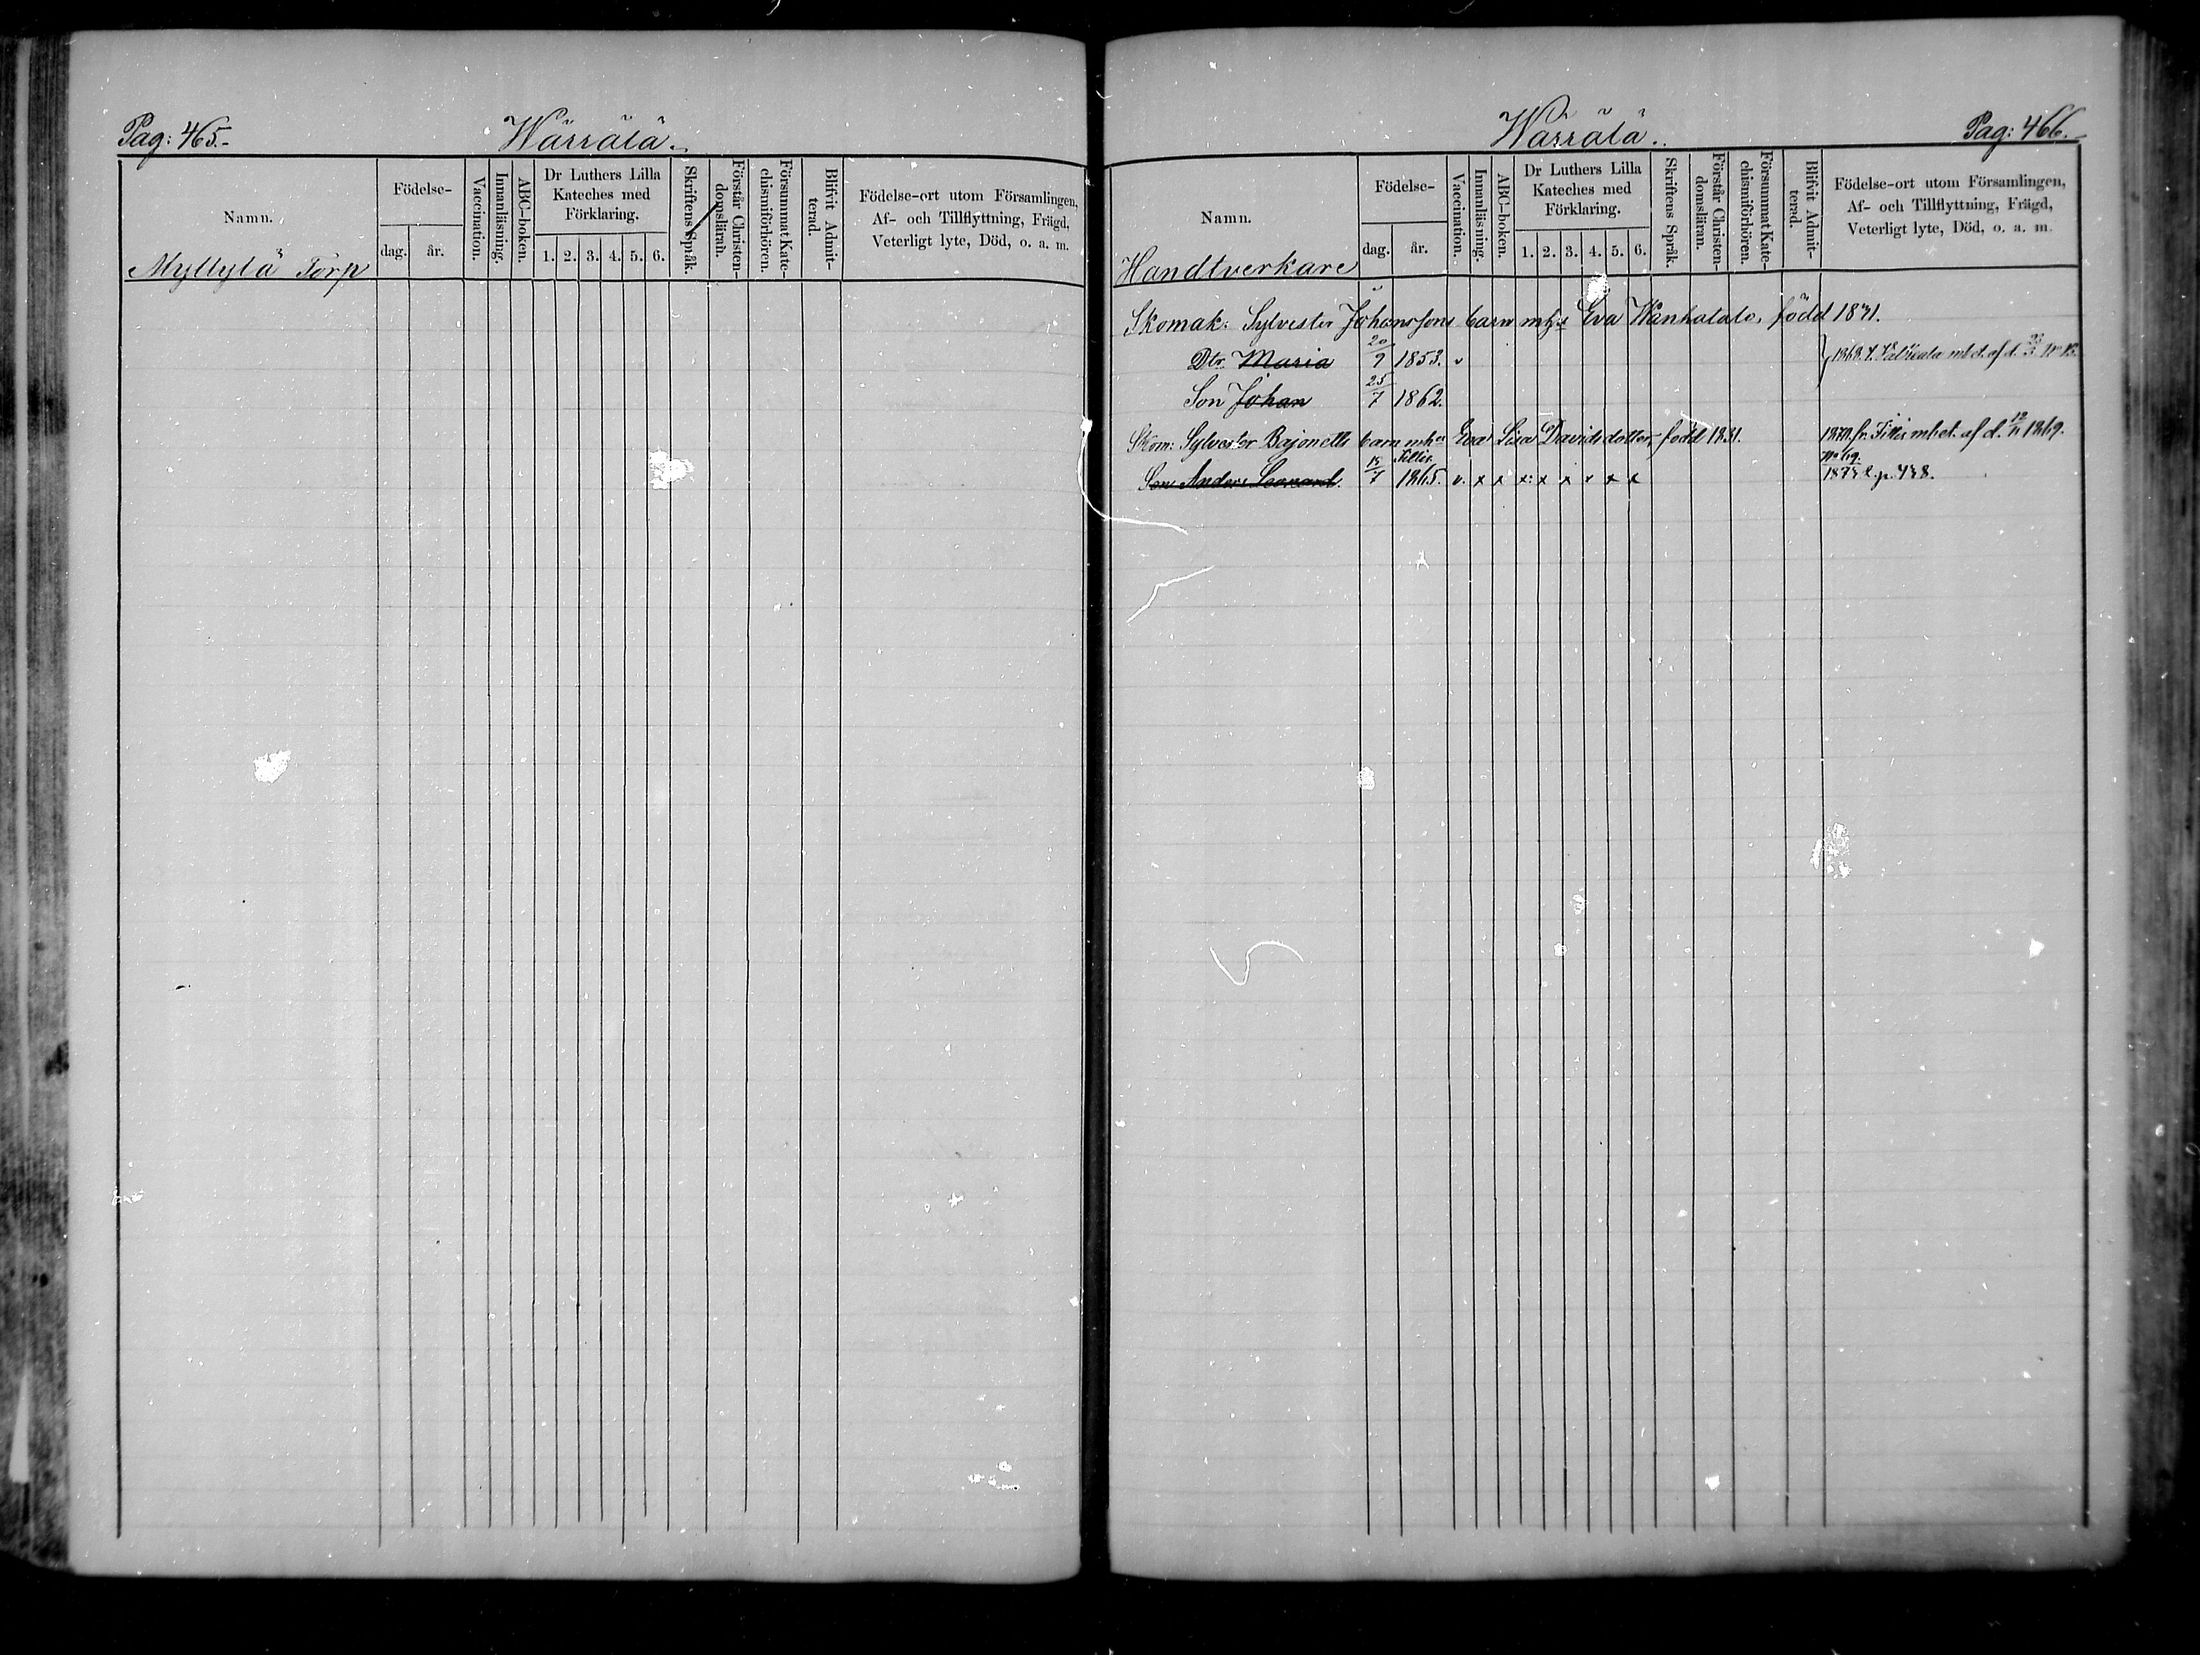 Pag: 465.-
Wärrälä.-
Namn.
Födelse-
dag.
år.
Vaccination.
Innanläsning.
ABC-boken.
Dr Luthers Lilla
Kateches med
Förklaring.
1. 2. 3. 4. 5. 6.
Skriftens Språk.
Förstår Christen-
domsläran.
Försummat Kate-
chismiförhören.
Blifvit Admit-
terad.
Födelse-ort utom Församlingen,
Af- och Tillflyttning, Frägd,
Veterligt lyte, Död, o. a. m.
Myllylä Torp
Wärrälä.
Pag: 466.-
Namn.
Födelse-
dag.
år.
Vaccination.
Innanläsning.
ABC-boken.
Dr Luthers Lilla
Kateches med
Förklaring.
1. 2. 3. 4. 5. 6.
Skriftens Språk.
Förstår Christen-
domsläran.
Försummat Kate-
chismiförhören.
Blifvit Admit-
terad.
Födelse-ort utom Församlingen,
Af- och Tillflyttning, Frägd,
Veterligt lyte, Död, o. a. m.
Handtverkare
Skomak: Sylvester Johanssons barn mh Eva Wanhatalo, född 1831.
Dtr. Maria 20/9 1853. v 1868 t. mbet. af d.
Son Johan 25/7 1862.
Skom: Sylvester Bajonetts barn mh Eva Lisa Davidsdotter född 1831. 1870 fr. mbet. af d. 12/11 1869.
No 69.
Son Anders Leonard. 15/7 1865. v. x x x x x x x x 187 l. p. 438.